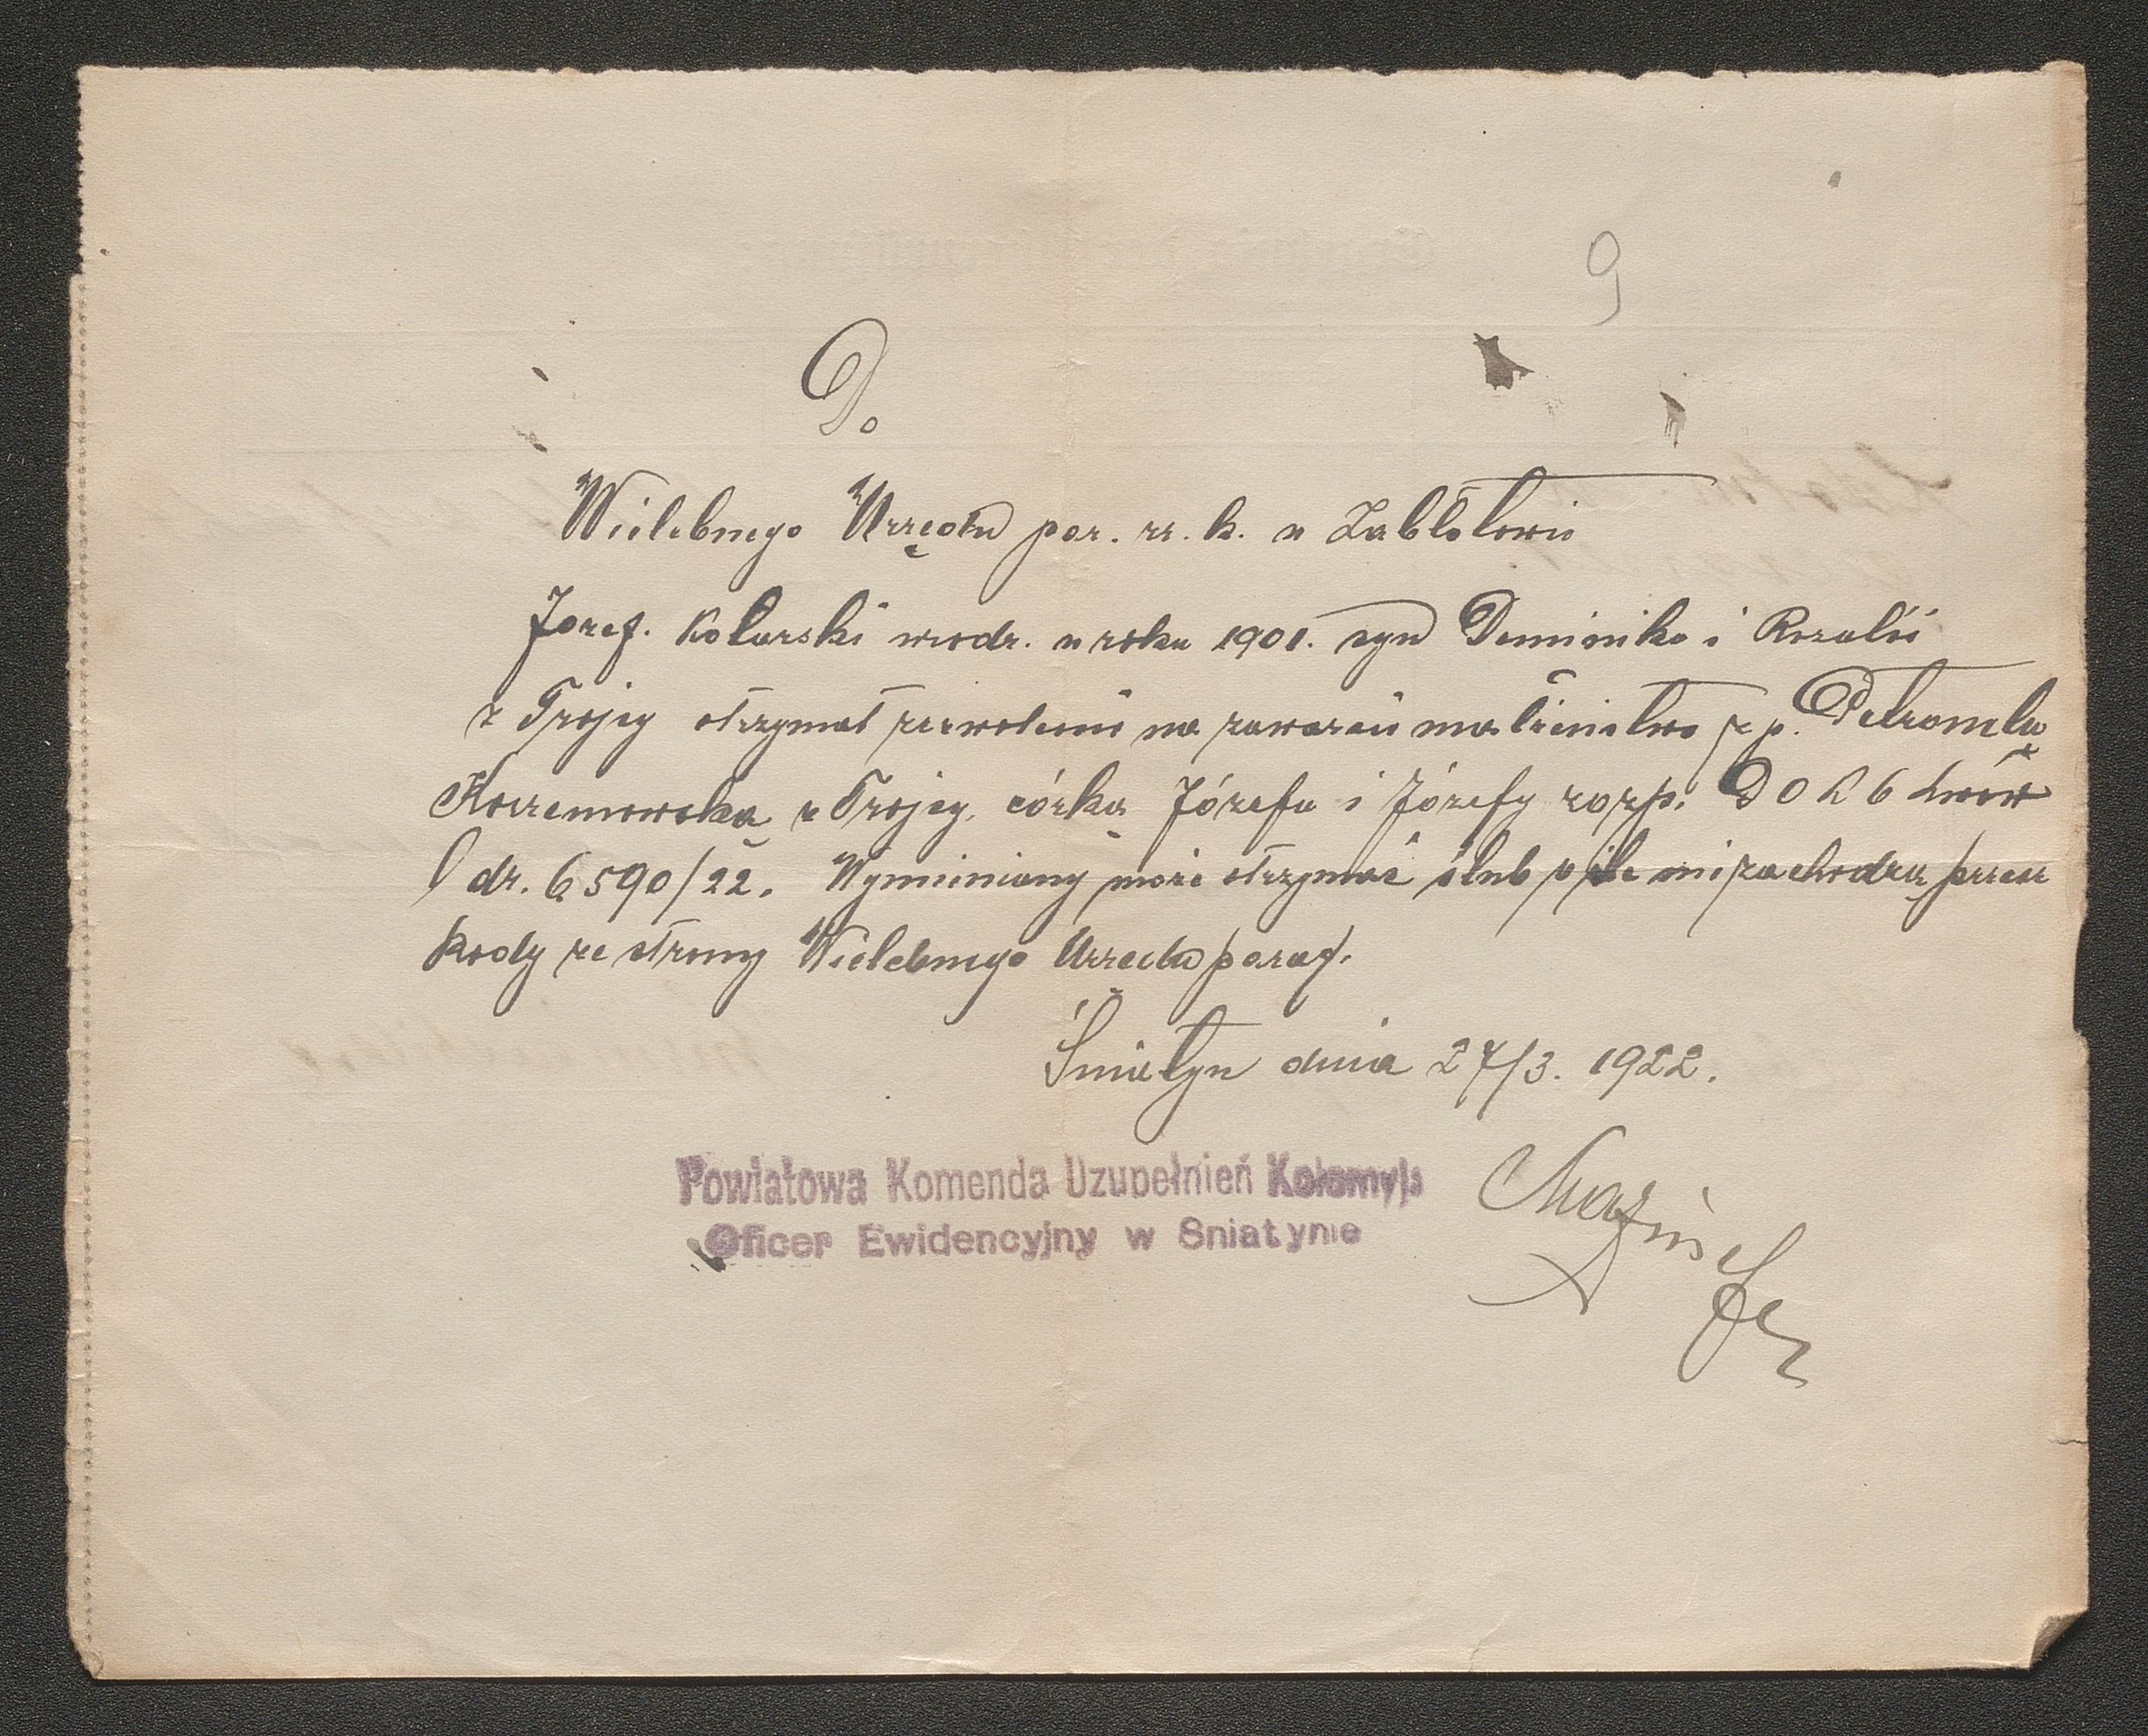 9
Do
Wielebnego Urzędu par. rz. k. w Zabłotowie
Jozef. Kolarski urodz. w roku 1901. syn Dominika i Rozalii
z Trojcy otrzymał zezwolenie na zawarcie małżeństwa z p. Petronelą
z Trojcy. córką Józefa i Józefy rozp. D O K 6 Lwów
l dz. 6590/22. Wymieniony może otrzymać ślub o ile nie zachodzą przesz
kody ze strony Wielebnego Urzędu paraf.
Śniatyn dnia 27/3. 1922.
Powiatowa Komenda Uzupełnień Kołomyja
Oficer Ewidencyjny w Sniatynie